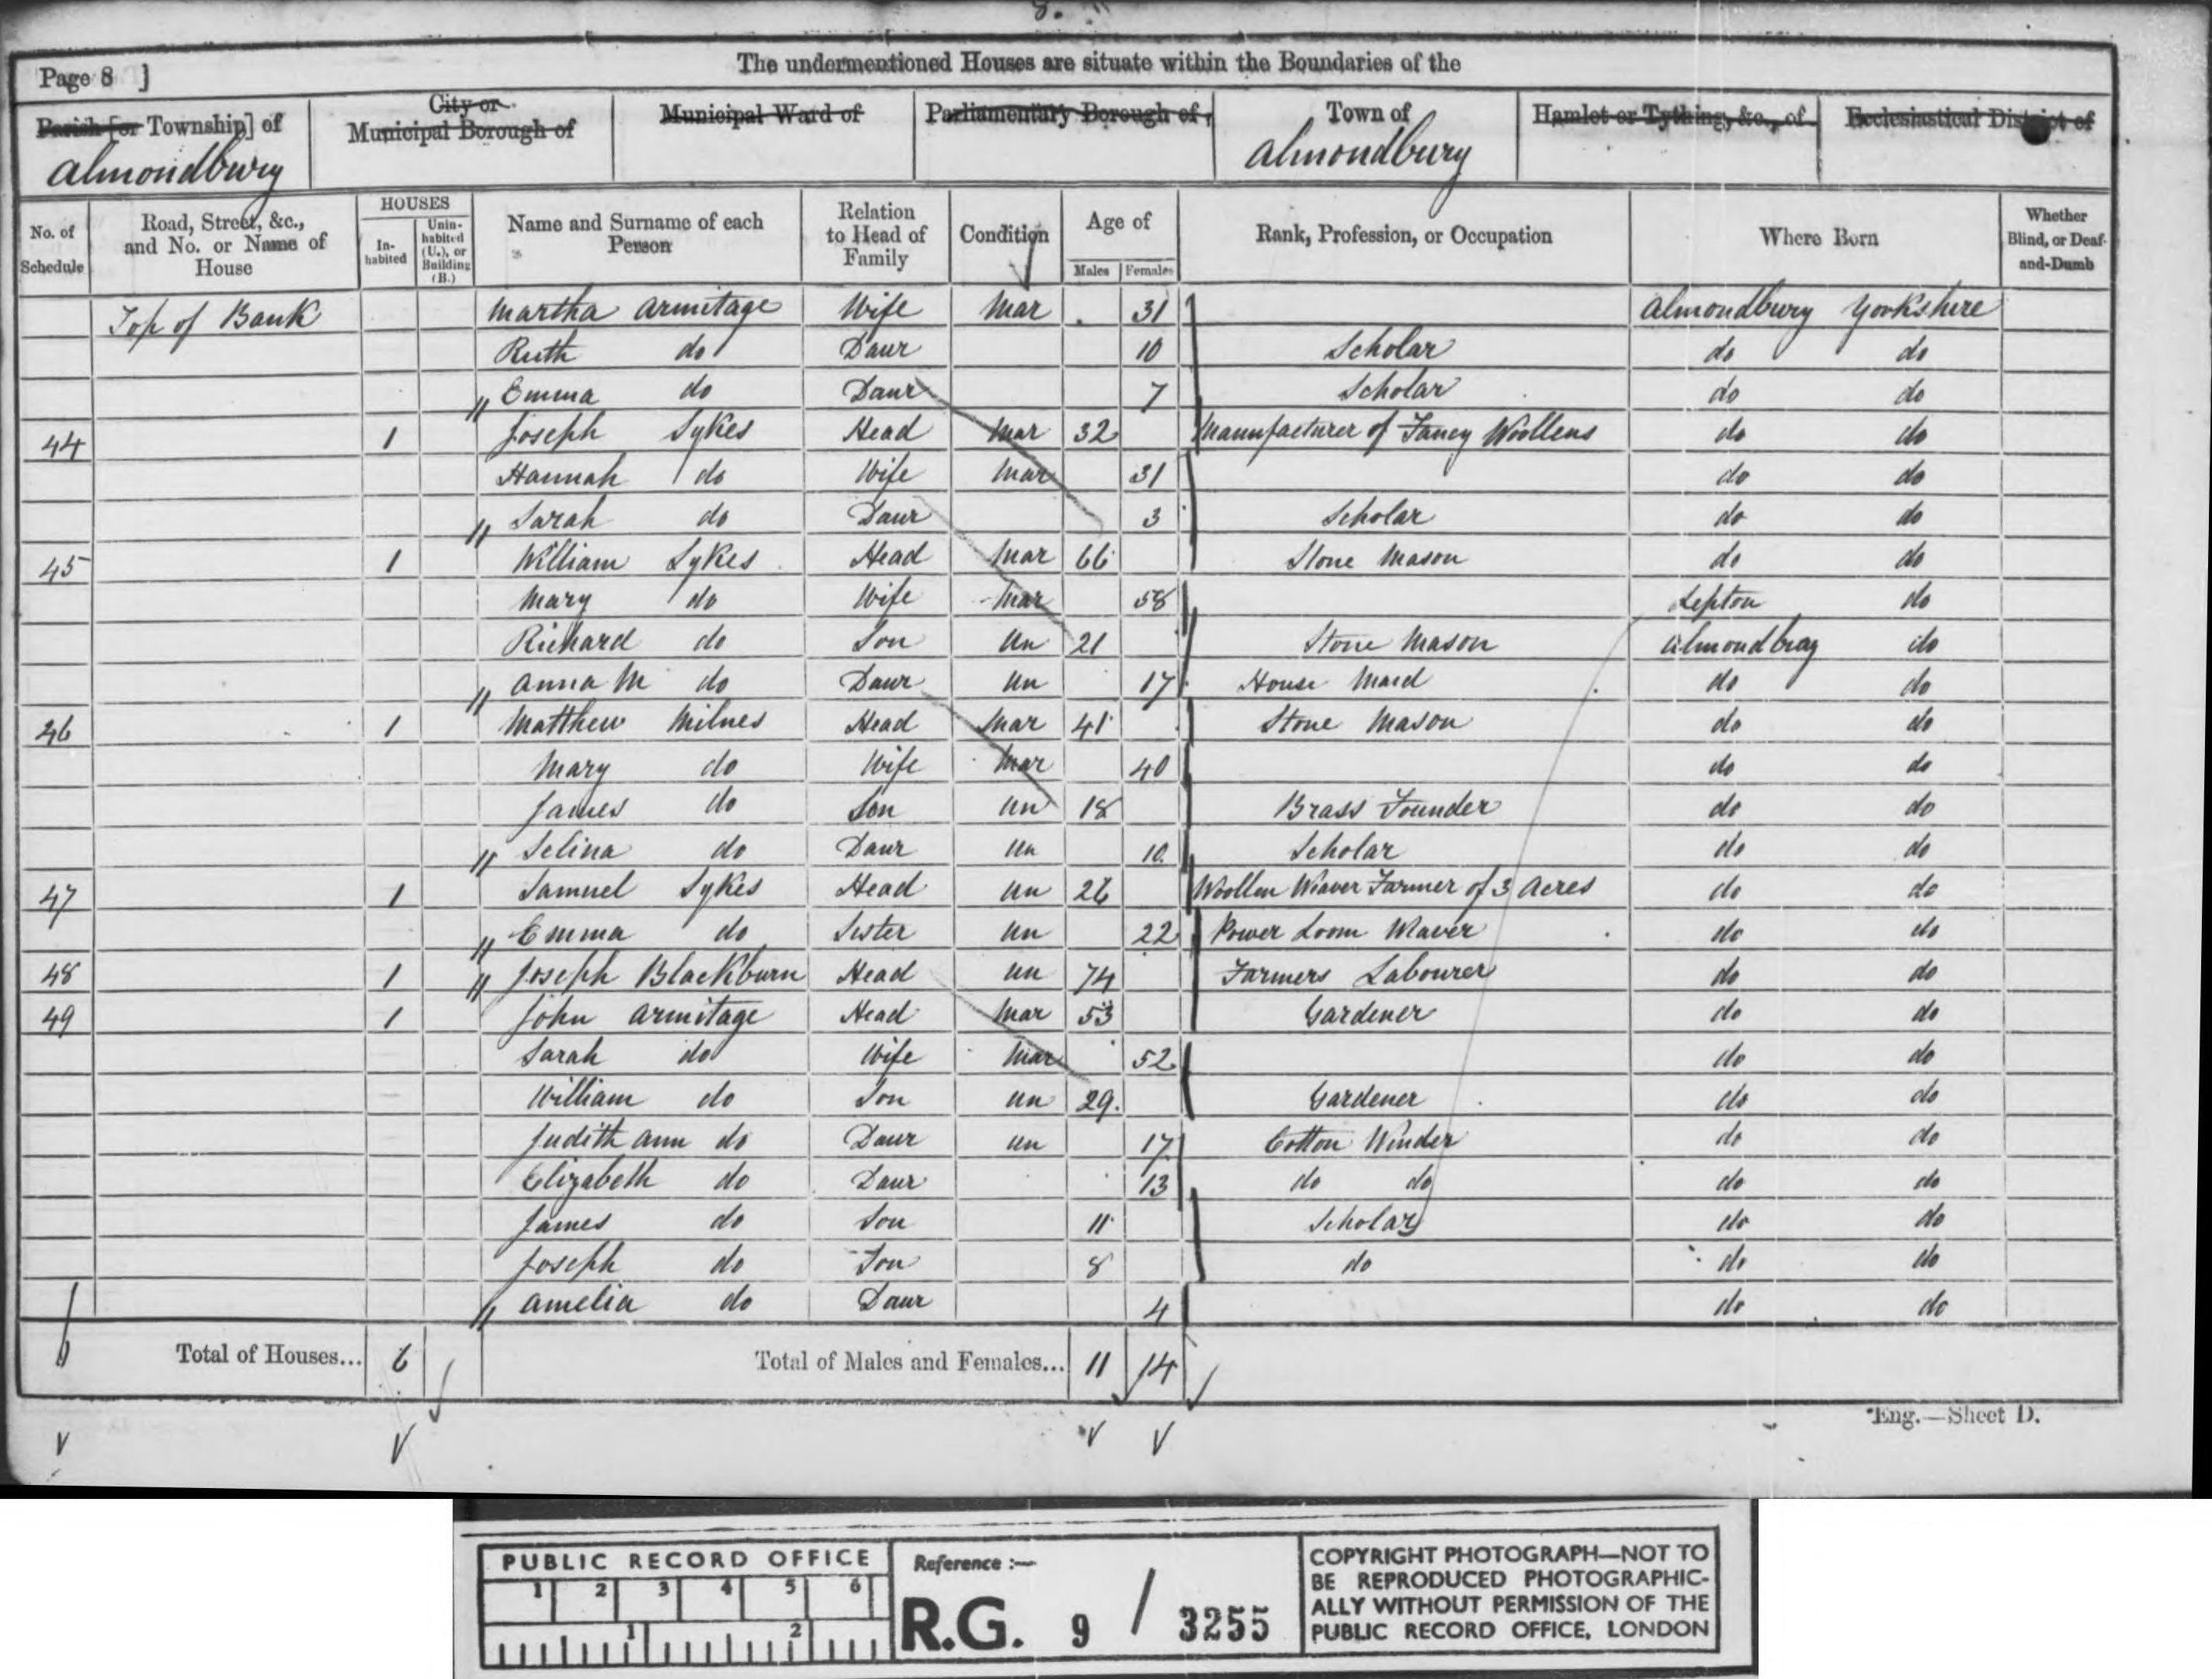 8.
The undermentioned Houses are situate within the Boundaries of the
Page 8 ]
Parish [or Township] of
Almondbury
City or
Municipal Borough of
Municipal Ward of
Parliamentary Borough of
Town of
Almondbury
Hamlet or Tything, &c., of
Ecclesiastical District of
No. of Schedule
Road, Street, &c., and No. or Name of House
HOUSES
In-habited
Unin-habited (U.), or Building (B.)
Name and Surname of each Person
Relation to Head of Family
Condition
Age of
Males Females
Rank, Profession, or Occupation
Where Born
Whether Blind, or Deaf-and-Dumb
Top of Bank Martha Armitage Wife Mar 31 Almondbury Yorkshire
Ruth do Daur 10 Scholar do do
" Emma do Daur 7 Scholar do do
44 1 Joseph Sykes Head Mar 32 Manufacturer of Fancy Woollens do do
Hannah do Wife Mar 31 do do
" Sarah do Daur 3 Scholar do do
45 1 William Sykes Head Mar 66 Stone Mason do do
Mary do Wife Mar 58 Lepton do
Richard do Son Un 21 Stone Mason Almondbury do
" Anna M do Daur Un 17 House Maid do do
46 1 Matthew Milnes Head Mar 41 Stone Mason do do
Mary do Wife Mar 40 do do
James do Son Un 18 Brass Founder do do
" Selina do Daur Un 10 Scholar do do
47 1 Samuel Sykes Head Un 26 Woollen Weaver Farmer of 3 Acres do do
" Emma do Sister Un 22 Power Loom Weaver do do
48 1 " Joseph Blackburn Head Un 74 Farmers Labourer do do
49 1 John Armitage Head Mar 53 Gardener do do
Sarah do Wife Mar 52 do do
William do Son Un 29 Gardener do do
Judith Ann do Daur Un 17 Cotton Winder do do
Elizabeth do Daur 13 do do do do
James do Son 11 Scholar do do
Joseph do Son 8 do do do
" Amelia do Daur 4 do do
6 Total of Houses... 6 Total of Males and Females... 11 14
Eng.—Sheet D.
PUBLIC RECORD OFFICE
1 2 3 4 5 6
1 2
Reference :—
R.G. 9 / 3255
COPYRIGHT PHOTOGRAPH—NOT TO
BE REPRODUCED PHOTOGRAPHIC-
ALLY WITHOUT PERMISSION OF THE
PUBLIC RECORD OFFICE, LONDON